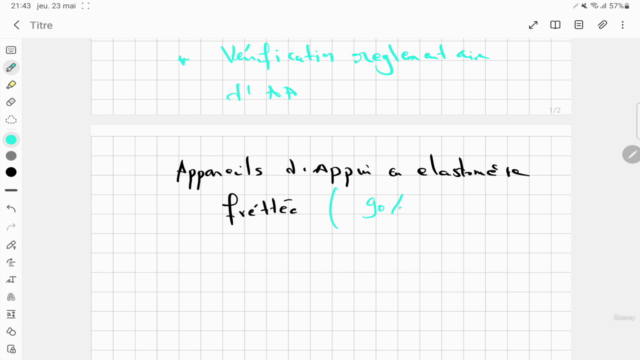 21:43 jeu. 23 mai
57%
Titre
* Vérification reglementaire
d'AA
1/2
Appareils d'Appui en elastomère
fréttée ( 90%